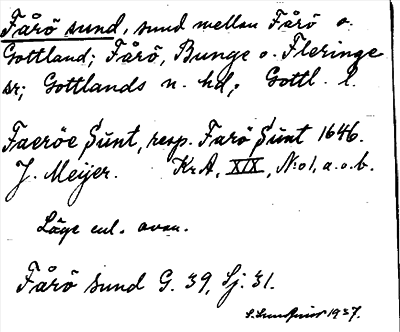 Fårö sund, sund mellan Fårö o.
Gottland; Fårö, Bunge o. Fleringe
sr; Gottlands n. hd; Gottl. l.
Faeröe Sunt, resp. Farö Sunt 1646.
J. Meijer. Kr.A, XIX, N:o 1, a.o.b.
Läge enl. ovan.
Fårö sund G. 39, Sj. 31.
1937.